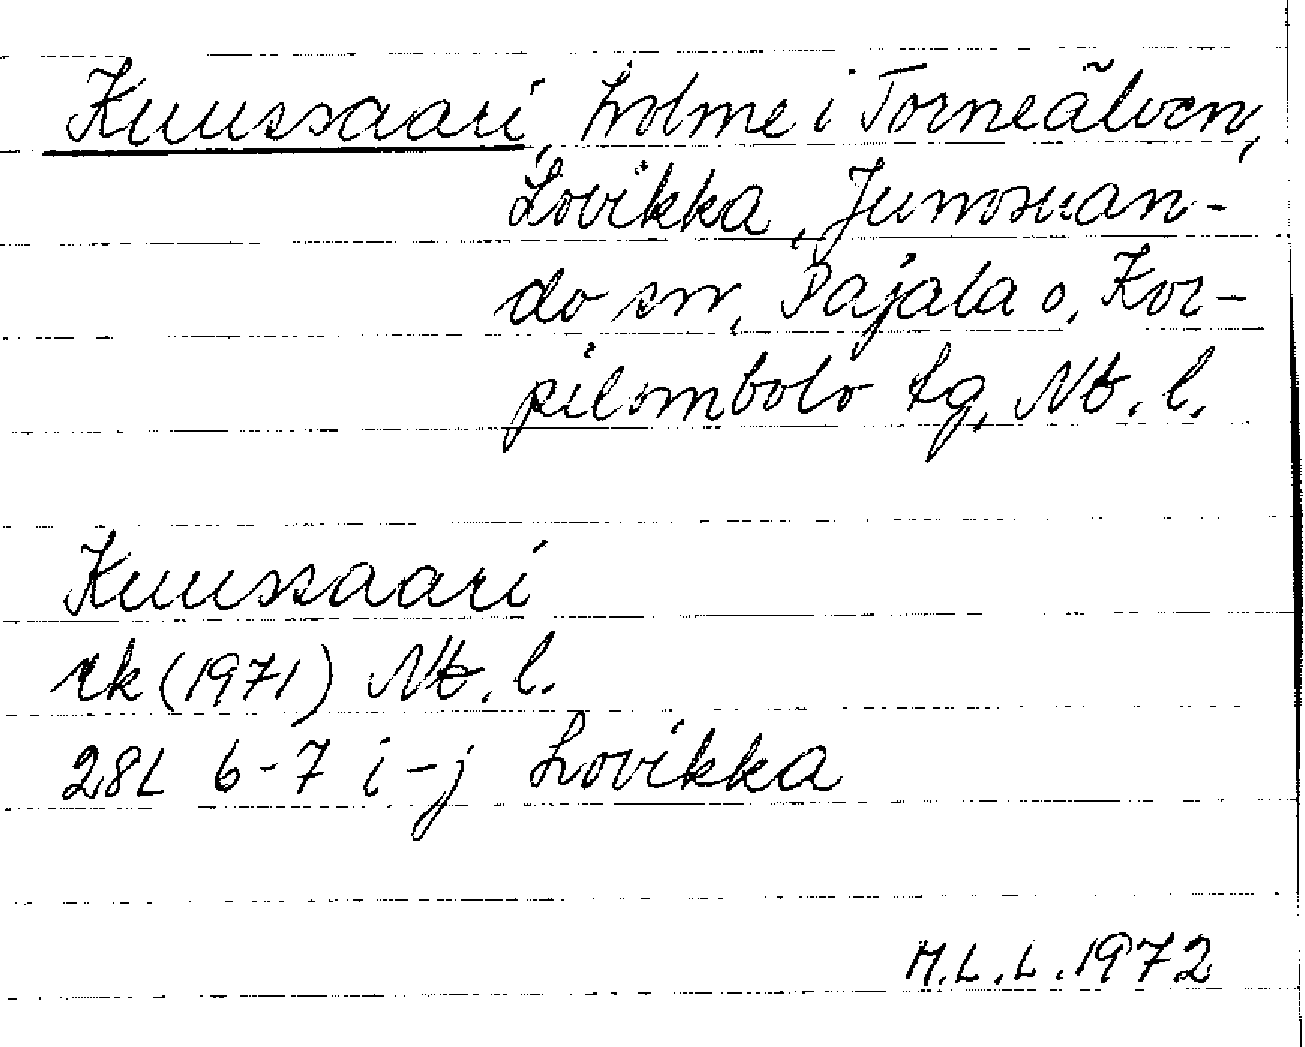 Kuussaari, holme i Torneälven,
Lovikka, Junosuan-
do sn, Pajala o. Kor-
pilombolo tg, Nb. l.
Kuussaari
rk (1971) Nb. l.
28L 6-7 i-j Lovikka
M.L.L. 1972